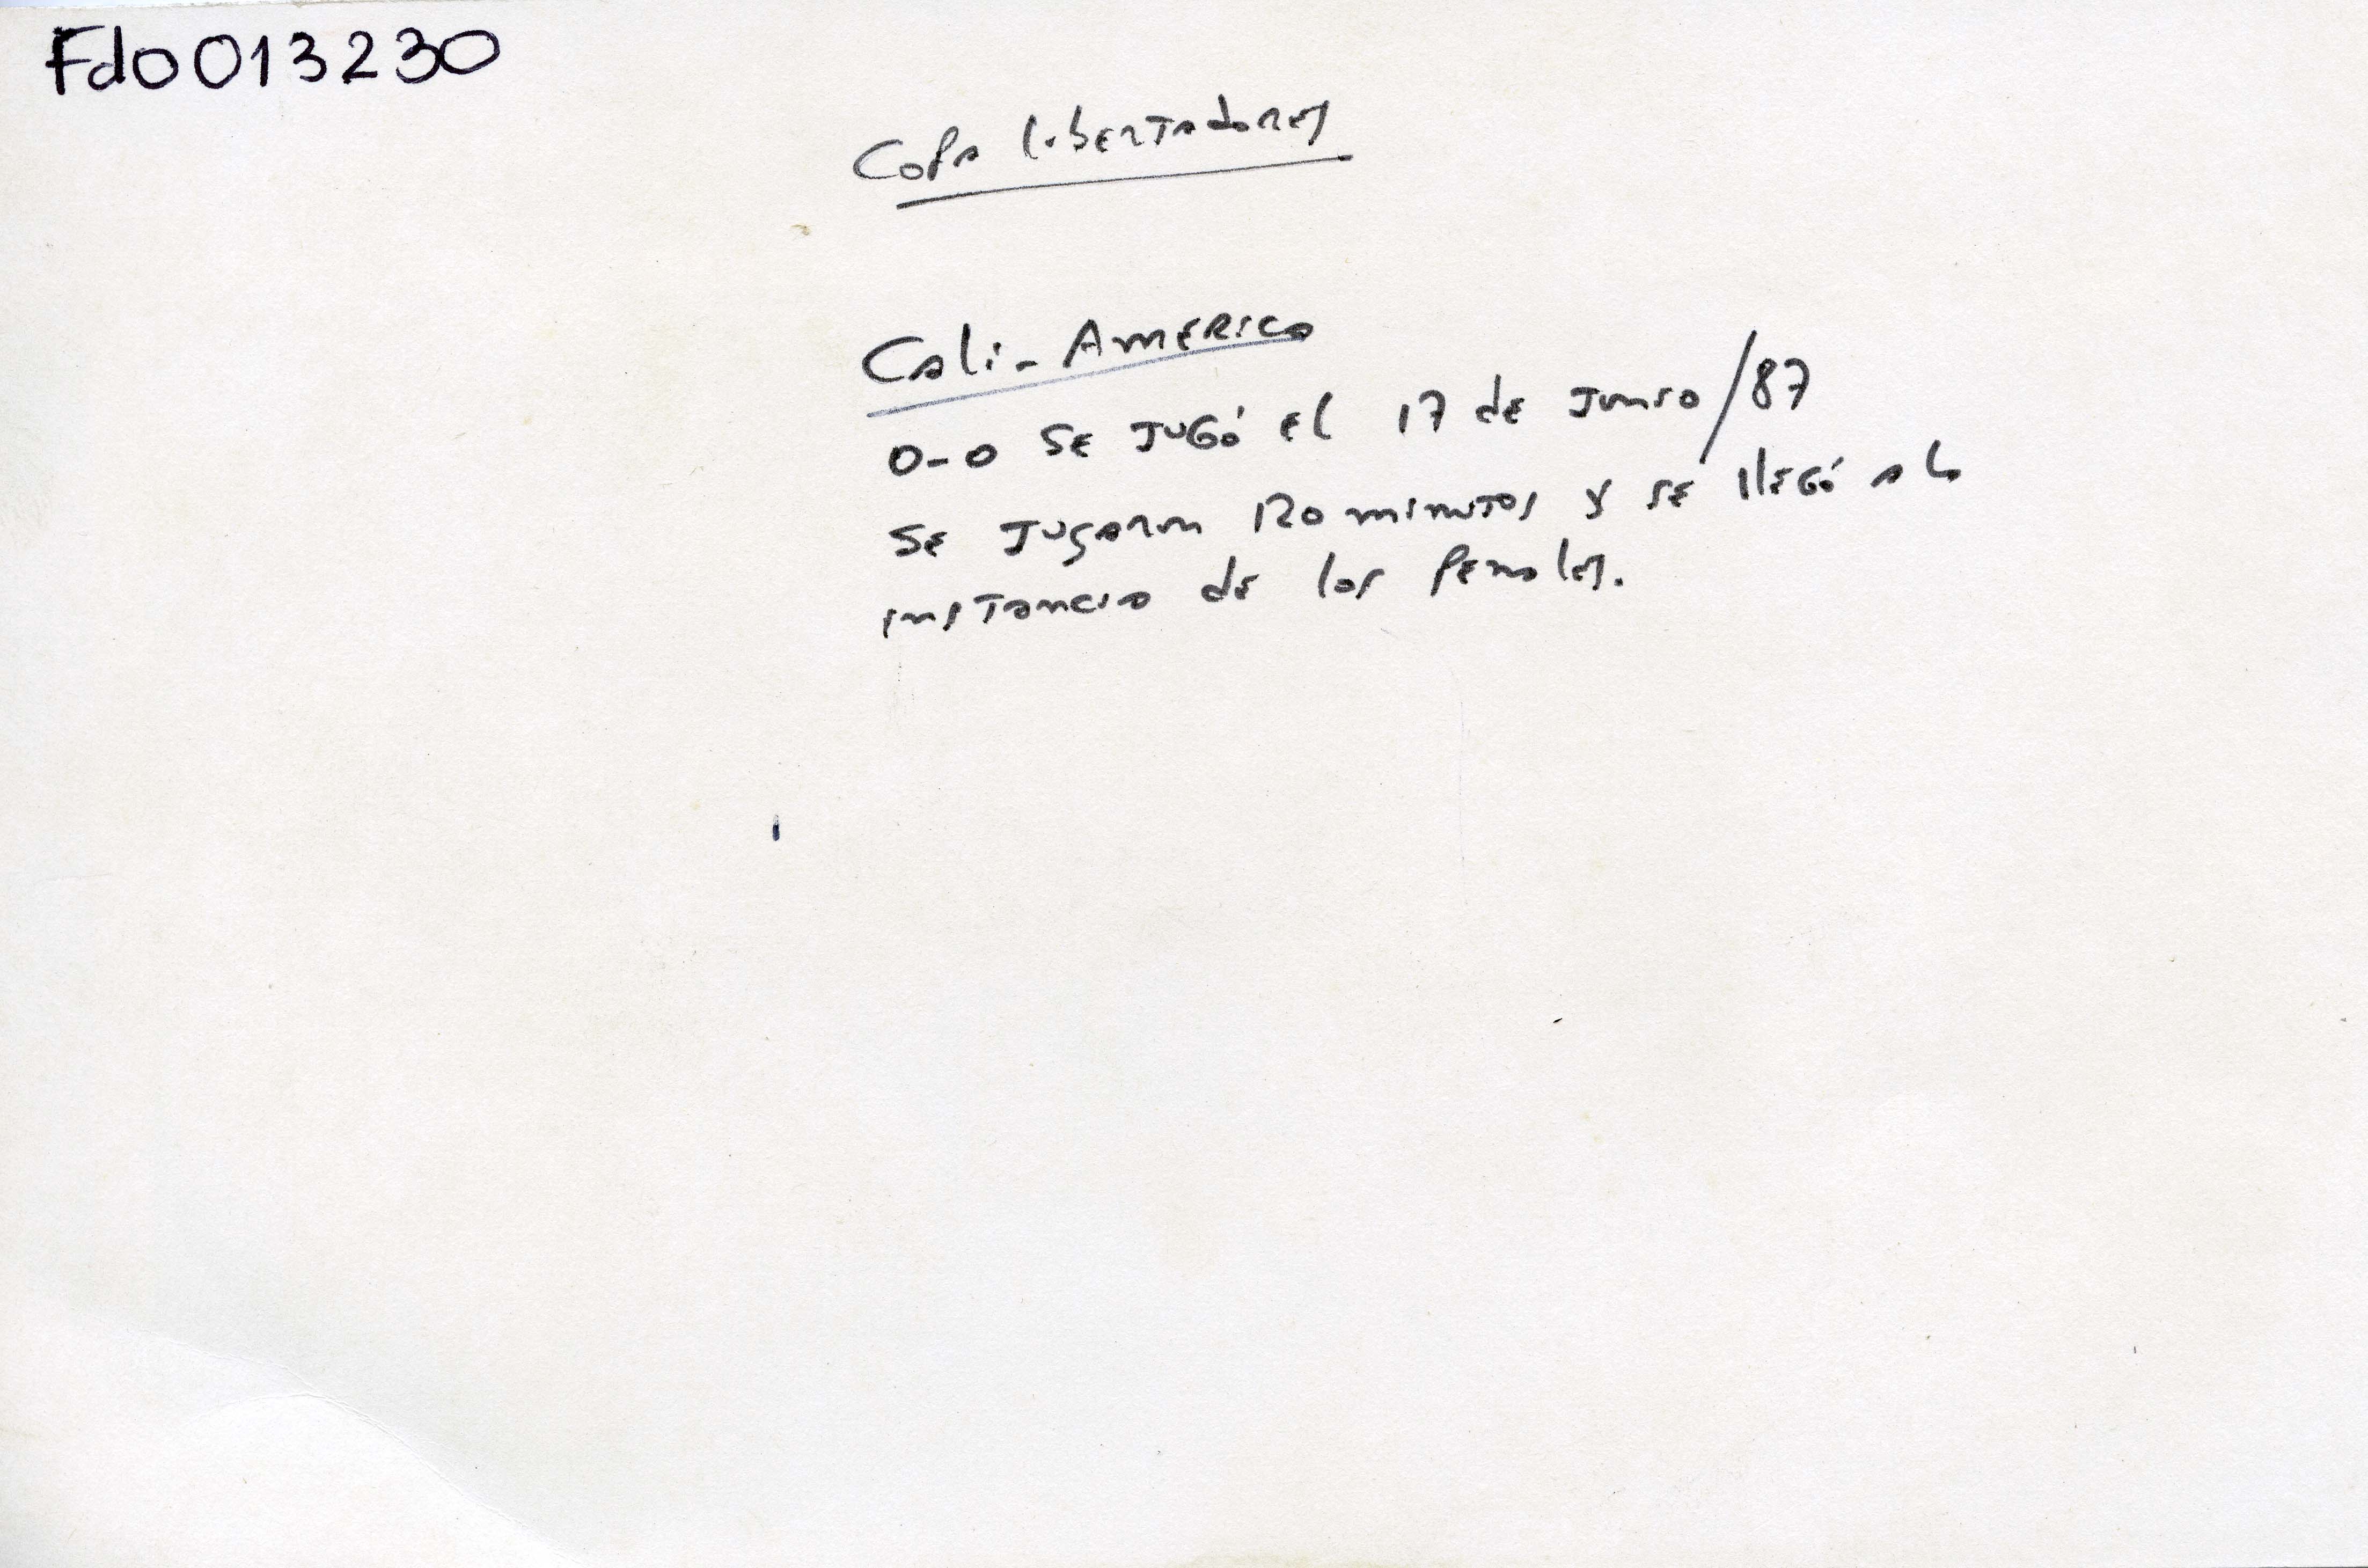 Fd0013230
Copa libertadores
Cali - America
0-0 Se jugó el 17 de junio/87
Se jugaron 120 minutos y se llegó a la
instancia de los penales.